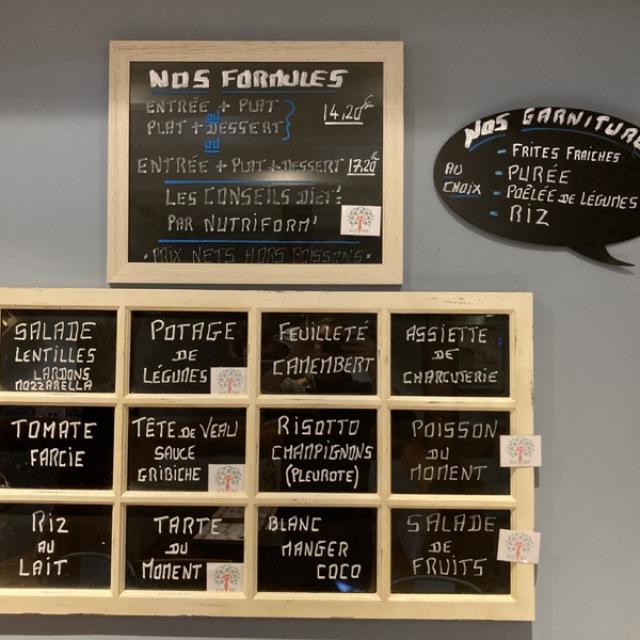 NOS FORMULES
ENTRÉE + PLAT
ou
PLAT + DESSERT
14,20€
ou
ENTRÉE + PLAT + DESSERT 17,20€
LES CONSEILS DIÉT'
PAR NUTRIFORM'
• PRIX NETS HORS BOISSONS •
NOS GARNITURE
AU CHOIX
- FRITES FRAICHES
- PURÉE
- POÊLÉE DE LÉGUMES
- RIZ
SALADE
LENTILLES
LARDONS
MOZZARELLA
POTAGE
DE
LÉGUMES
FEUILLETÉ
CAMEMBERT
ASSIETTE
DE
CHARCUTERIE
TOMATE
FARCIE
TÊTE DE VEAU
SAUCE
GRIBICHE
RISOTTO
CHAMPIGNONS
(PLEUROTE)
POISSON
DU
MOMENT
RIZ
AU
LAIT
TARTE
DU
MOMENT
BLANC
MANGER
COCO
SALADE
DE
FRUITS